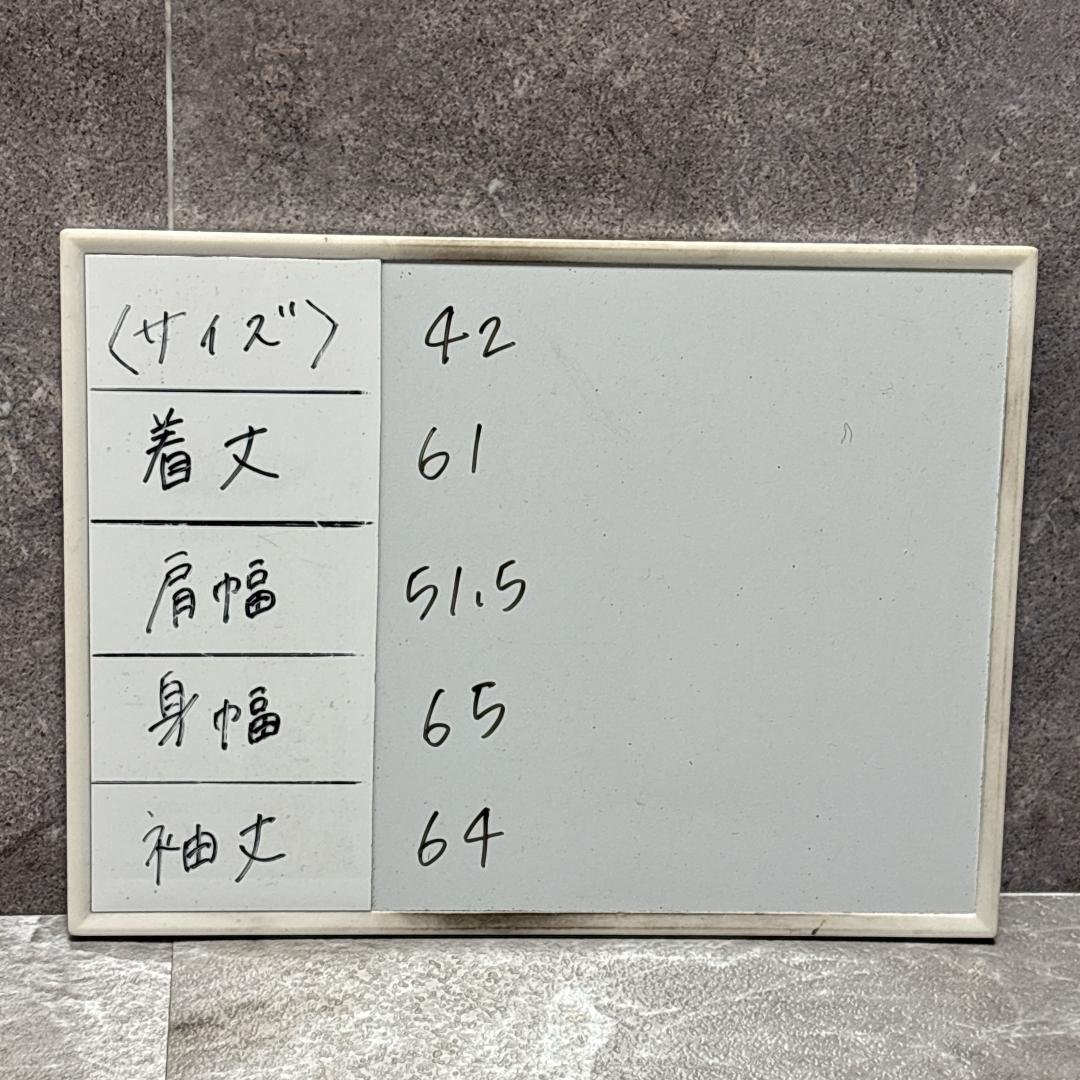 〈サイズ〉 42
着丈 61
肩幅 51.5
身幅 65
袖丈 64